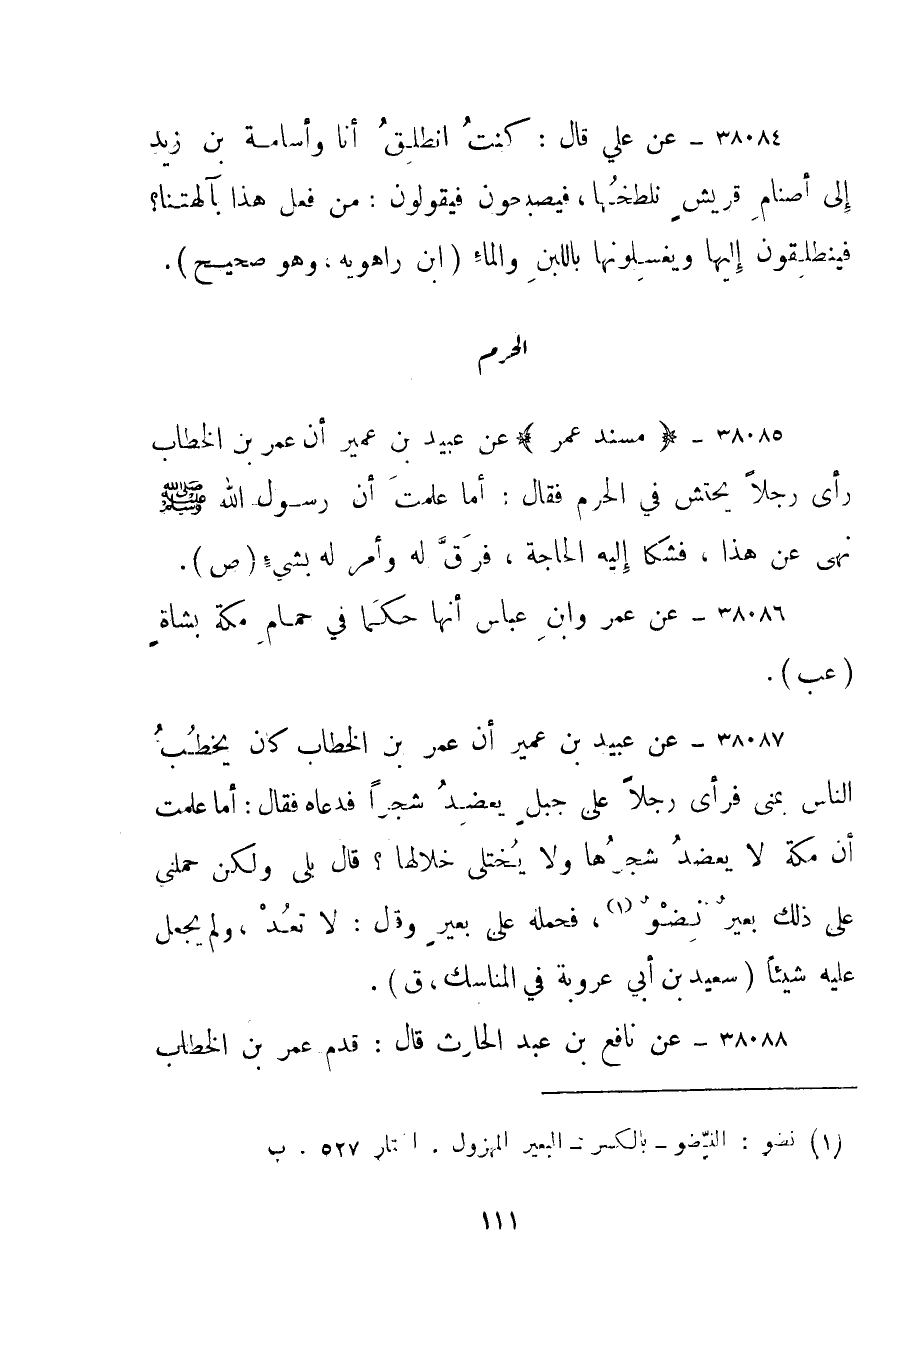 ٣٨٠٨٤ ـ عن علي قال : كنتُ انطلقُ أنا وأسامة بن زيد
إلى أصنامِ قريشٍ نلطخُها ، فيصبحون فيقولون : من فعل هذا بآلهتنا؟
فينطلقون إليها ويغسلونها باللبنِ والماءِ ( ابن راهويه ، وهو صحيح ) .
الحرم
٣٨٠٨٥ ـ ﴿ مسند عمر ﴾ عن عبيد بن عمير أن عمر بن الخطاب
رأى رجلاً يحتش في الحرم فقال : أما علمتَ أن رسول الله ﷺ
نهى عن هذا ، فشكا إليه الحاجة ، فرَقَّ له وأمر له بشيءٍ ( ص ) .
٣٨٠٨٦ ـ عن عمر وابنِ عباس أنها حكَما في حمامِ مكة بشاةٍ
( عب ) .
٣٨٠٨٧ ـ عن عبيد بن عمير أن عمر بن الخطاب كان يخطُبُ
الناس بمنى فرأى رجلاً على جبلٍ يعضِدُ شجراً فدعاه فقال : أما علمت
أن مكة لا يعضدُ شجرُها ولا يُختلى خلالها ؟ قال بلى ولكن حملني
على ذلك بعيرٌ نِضْوٌ (١) ، فحمله على بعيرٍ وقال : لا تعُدْ ، ولم يجعل
عليه شيئاً ( سعيد بن أبي عروبة في المناسك ، ق ) .
٣٨٠٨٨ ـ عن نافع بن عبد الحارث قال : قدم عمر بن الخطاب
(١) نضو : النِّضو ـ بالكسر ـ البعير المهزول . ٥٢٧ . ب
١١١